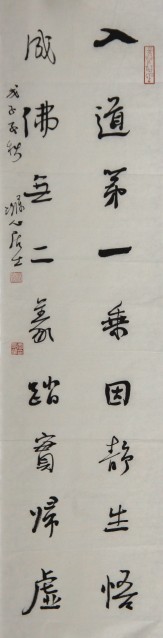 入道第一乘因静生悟
成佛無二義踏實歸虛
戊子秋
心居士